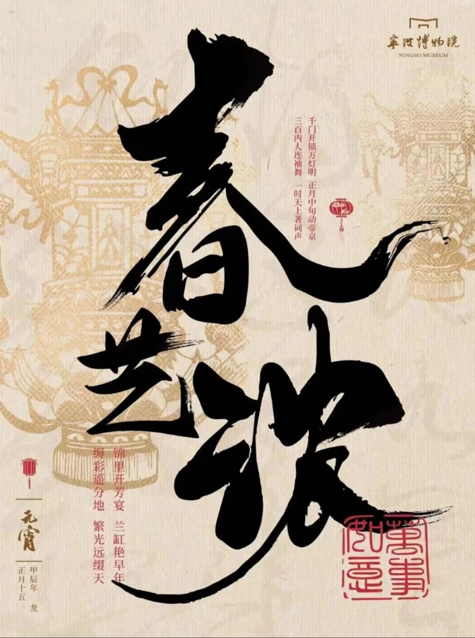 寧波博物院
NINGBO MUSEUM
春
艺
浓
千门开锁万灯明 正月中旬动帝京
三百内人连袖舞 一时天上著词声
锦里开芳宴 兰缸艳早年
缛彩遥分地 繁光远缀天
元宵
甲辰年 龙
正月十五
萬事
如意